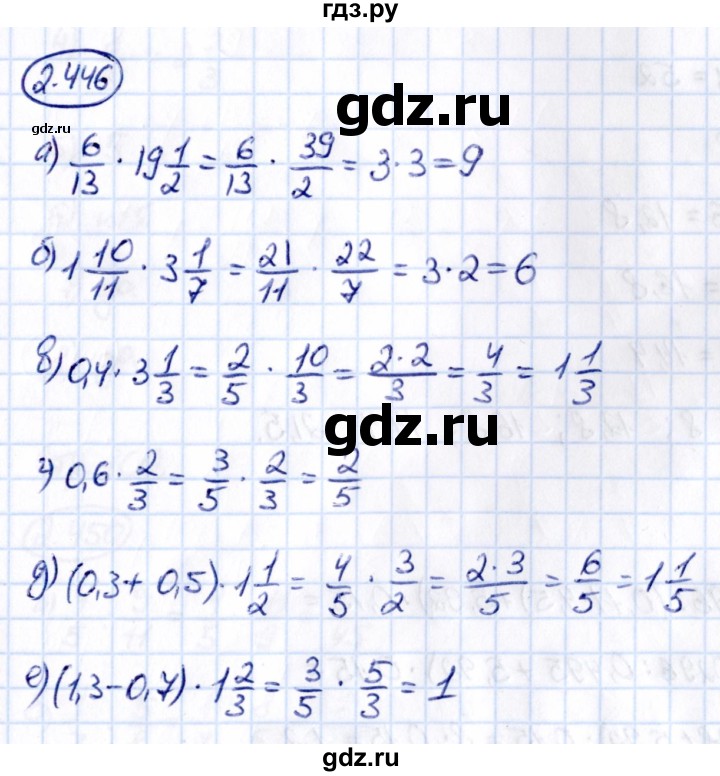 гдз.ру
2.446
gdz.ru
gdz.ru
а) 6/13 · 19 1/2 = 6/13 · 39/2 = 3·3 = 9
б) 1 10/11 · 3 1/7 = 21/11 · 22/7 = 3·2 = 6
в) 0,4 · 3 1/3 = 2/5 · 10/3 = 2·2/3 = 4/3 = 1 1/3
gdz.ru
г) 0,6 · 2/3 = 3/5 · 2/3 = 2/5
д) (0,3 + 0,5) · 1 1/2 = 4/5 · 3/2 = 2·3/5 = 6/5 = 1 1/5
gdz.ru
е) (1,3 - 0,7) · 1 2/3 = 3/5 · 5/3 = 1
gdz.ru